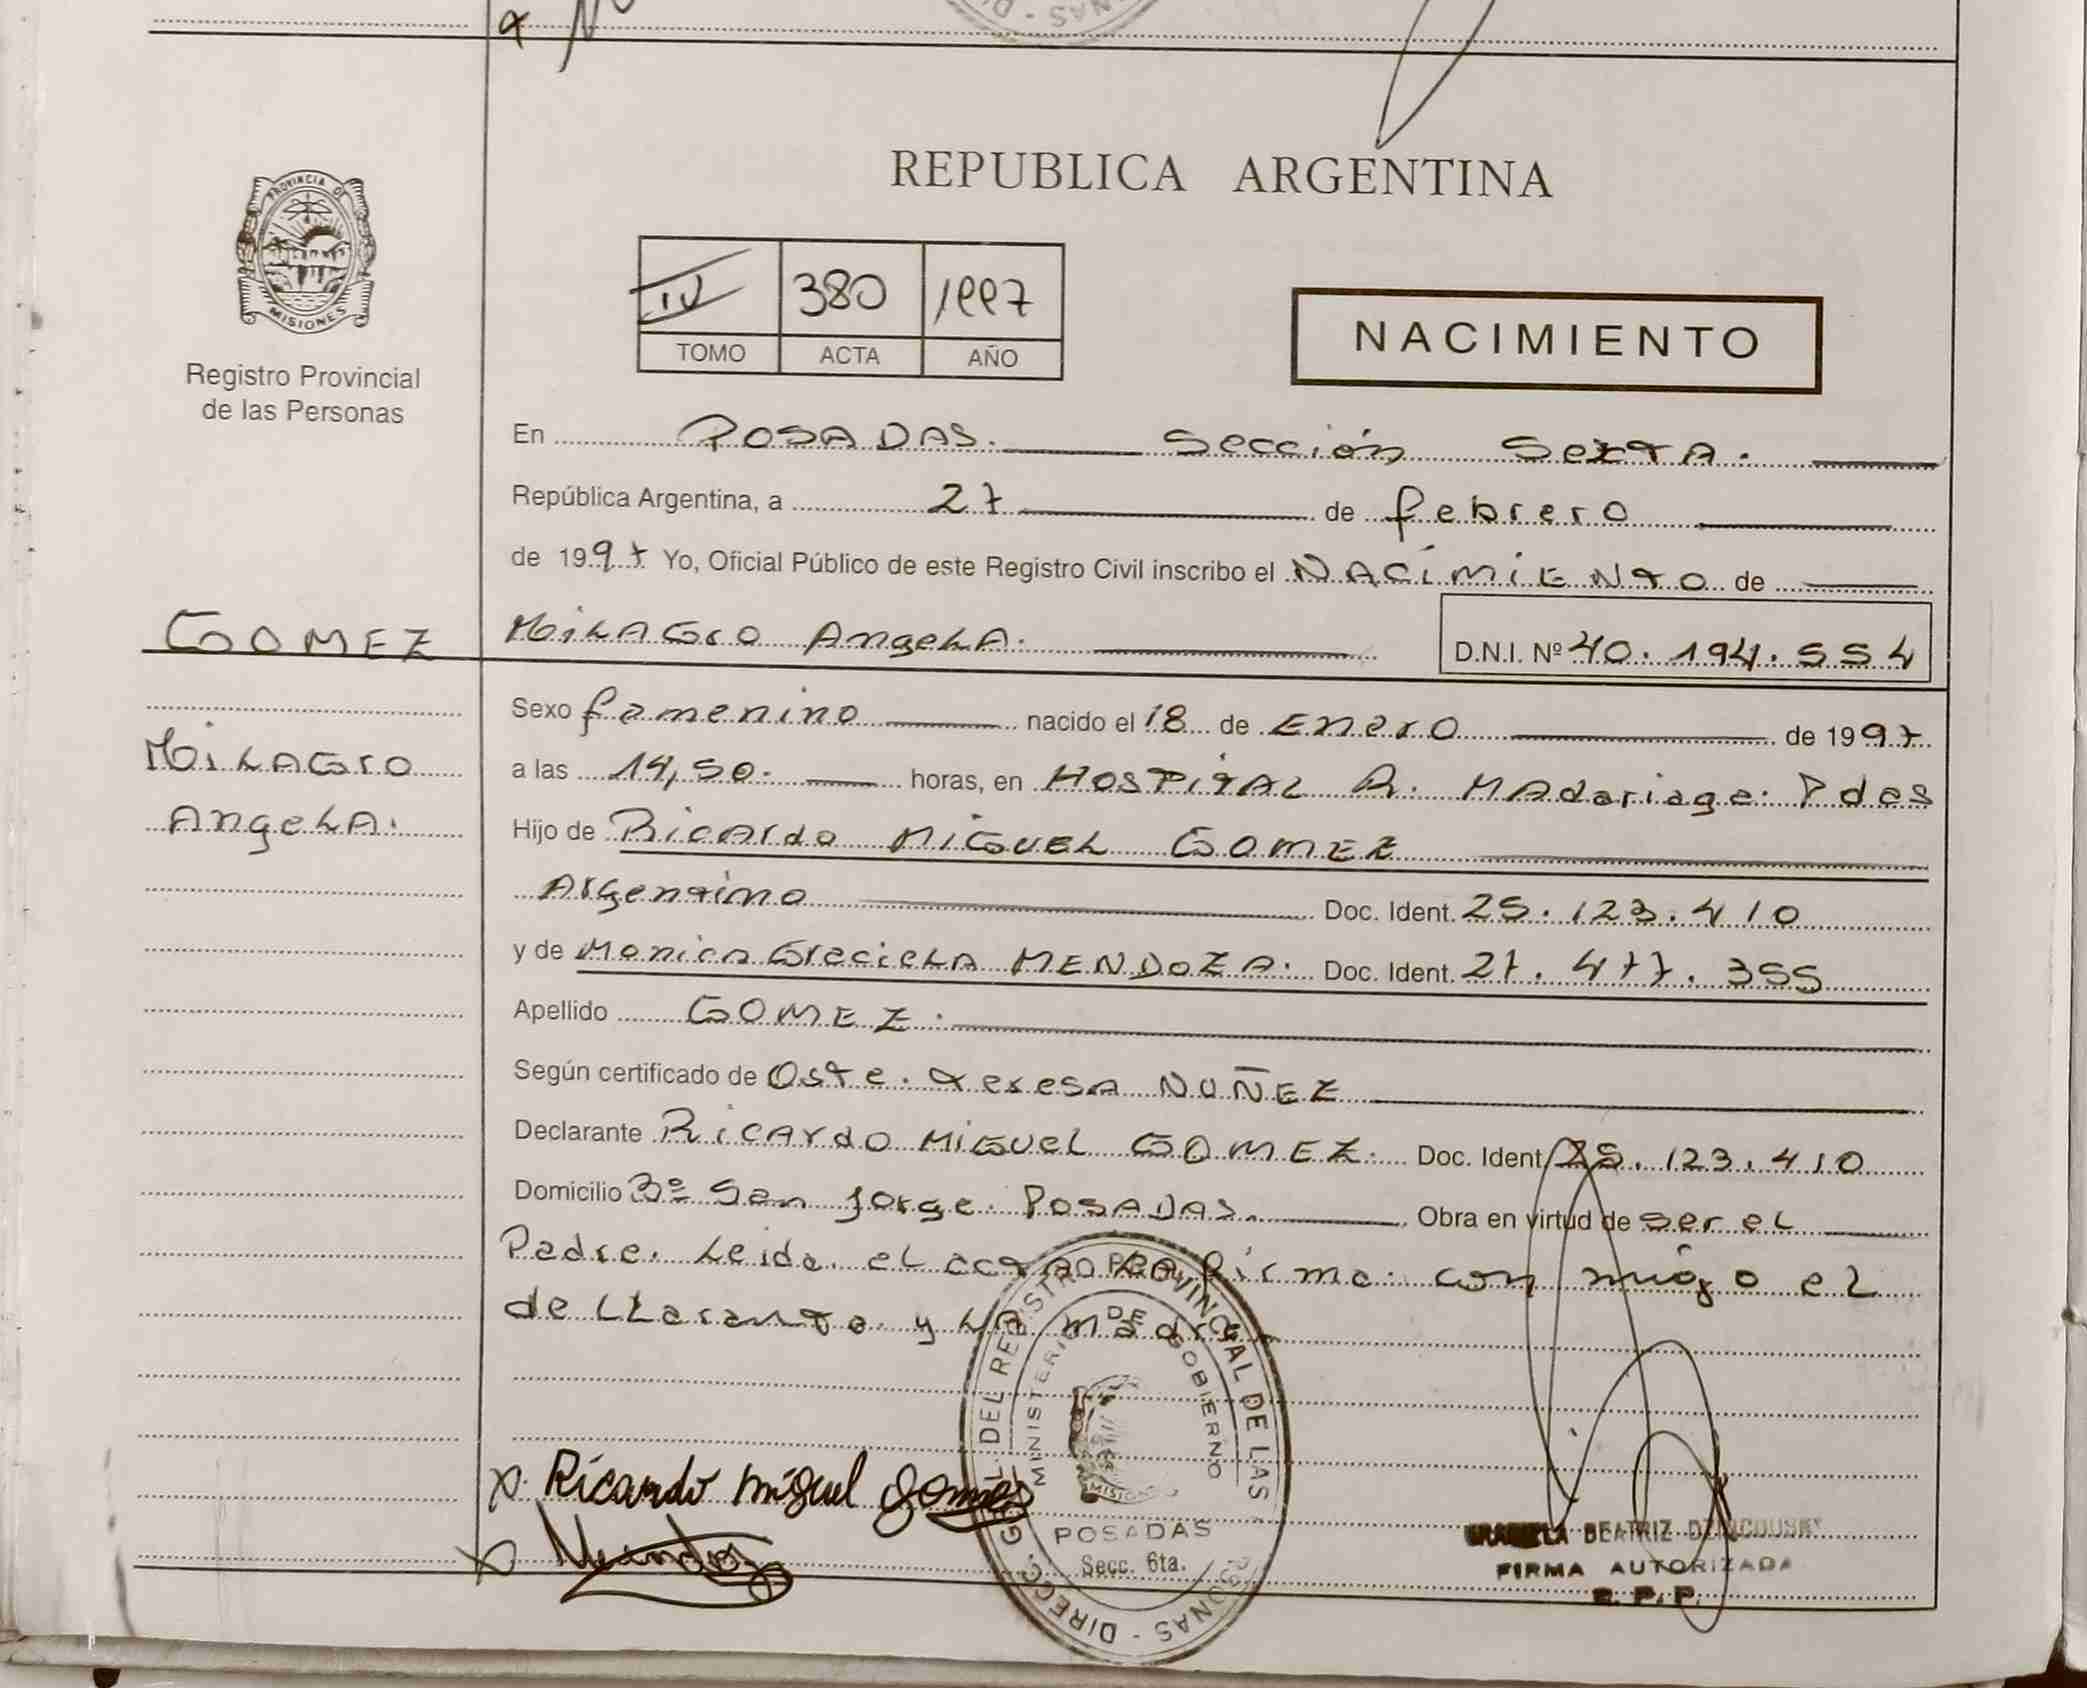 REPUBLICA ARGENTINA
PROVINCIA DE
MISIONES
Registro Provincial
de las Personas
IV 380 1997
TOMO ACTA AÑO
NACIMIENTO
En POSADAS. Sección Sexta.
República Argentina, a 27 de febrero
de 1997 Yo, Oficial Público de este Registro Civil inscribo el NACIMIENTO de
GOMEZ
MILAGRO AngeLA. D.N.I. Nº 40.194.554
Sexo famenino nacido el 18 de Enero de 1997
MiLAGrO
AngeLA.
a las 14,50. horas, en HOSPITAL R. MAdariaga. Pdas
Hijo de Ricardo MiGUEL GOMEZ
Argentino Doc. Ident. 25.123.410
y de Monica GracieLA MENDOZA. Doc. Ident. 27.477.355
Apellido GOMEZ.
Según certificado de Oste. teresa NUÑEZ
Declarante Ricardo MiGUEL GOMEZ. Doc. Ident 25.123.410
Domicilio Bº San Jorge. POSADAS. Obra en virtud de ser el
Padre. Leida el acta La firma con migo el
de LLarante y LA madre
x. Ricardo miguel gomez
x Mendoza
DIRECC. GRAL. DEL REGISTRO PROVINCIAL DE LAS PERSONAS
MINISTERIO DE GOBIERNO
MISIONES
POSADAS
Secc. 6ta.
BEATRIZ
FIRMA AUTORIZADA
R. P. P.